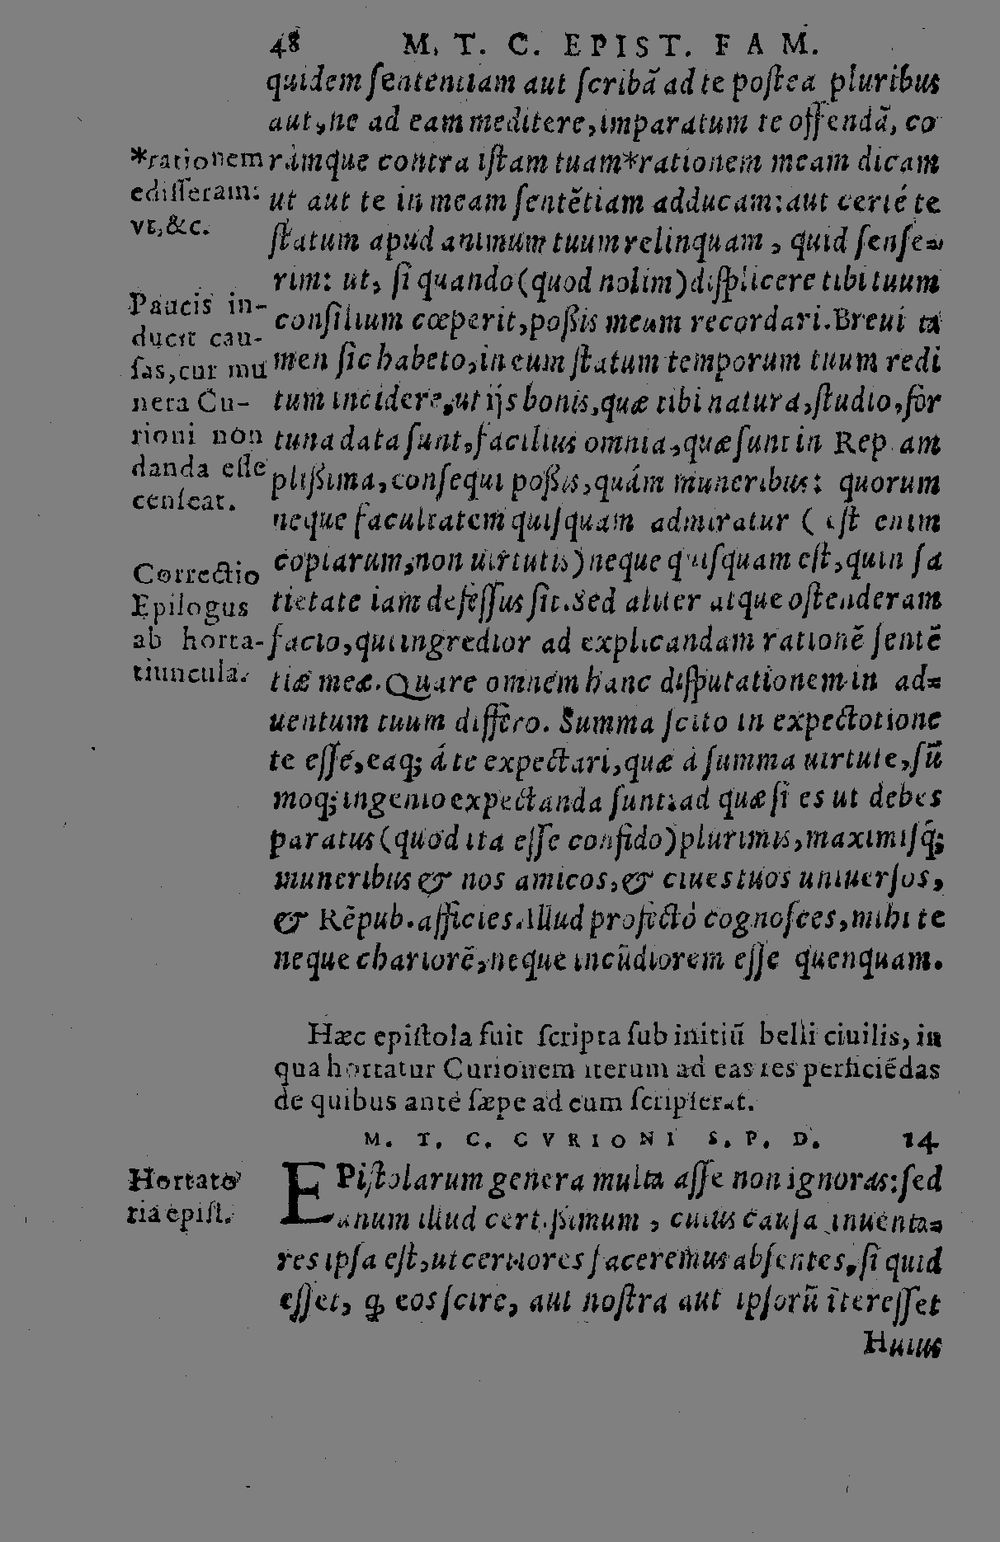 48 M. T. C. EPIST. FAM.
quidem ſententiam aut ſcribã ad te poſtea pluribus
aut, ne ad eam meditere, imparatum te offendã, co
*rationem
ràmque contra iſtam tuam*rationem meam dicam
ediſſeram:
ut aut te in meam ſentẽtiam adducam: aut certé te
vt, &c.
ſtatum apud animum tuum relinquam, quid ſenſe-
rim: ut, ſi quando (quod nolim) diſplicere tibi tuum
Paucis in-
conſilium cœperit, poßis meum recordari. Breui tã
ducit cau-
men ſic habeto, in eum ſtatum temporum tuum redi
ſas, cur mu
tum incidere, ut ijs bonis, quæ tibi natura, ſtudio, for
nera Cu-
rioni non
tuna data ſunt, facilius omnia, quæ ſunt in Rep. am
danda eſſe
plißima, conſequi poßis, quám muneribus: quorum
cenſeat.
neque facultatem quiſquam admiratur ( eſt enim
copiarum, non uirtutis) neque quiſquam eſt, quin ſa
Correctio
tietate iam defeſſus ſit. Sed aliter atque oſtenderam
Epilogus
ab horta-
facio, qui ingredior ad explicandam rationẽ ſentẽ
tiuncula.
tiæ meæ. Quare omnem hanc diſputationem in ad-
uentum tuum differo. Summa ſcito in expectotione
te eſſe, eaq; á te expectari, quæ à ſumma uirtute, ſũ
moq; ingenio expectanda ſunt: ad quæ ſi es ut debes
paratus (quod ita eſſe confido) plurimis, maximiſq̃;
muneribus & nos amicos, & ciues tuos uniuerſos,
& Rẽpub. afficies. Illud profectò cognoſces, mihi te
neque chariorẽ, neque iucũdiorem eſſe quenquam.
Hæc epiſtola fuit ſcripta ſub initiũ belli ciuilis, in
qua hortatur Curionem iterum ad eas res perficiẽdas
de quibus anté ſæpe ad eum ſcripſerat.
M. T. C. CVRIONI S. P. D. 14
Hortato
EPiſtolarum genera multa aſſe non ignoras: ſed
ria epiſt.
unum illud certißimum, cuius cauſa inuenta-
res ipſa eſt, ut certiores faceremus abſentes, ſi quid
eſſet, q̃ eos ſcire, aut noſtra aut ipſorũ ĩtereſſet
Huius